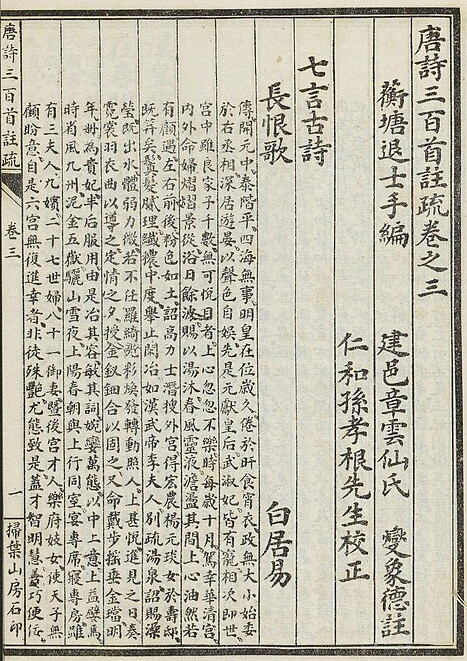 唐詩三百首註疏卷之三
蘅塘退士手編 建邑章雲仙氏 燮象德註
仁和孫孝根先生校正
七言古詩
長恨歌 白居易
傳開元中泰階平四海無事明皇在位歲久倦於旰食宵衣政無大小始委
於右丞相深居遊宴以聲色自娛先是元獻皇后武淑妃皆有寵相次即世
宮中雖良家子千數無可悅目者上心忽忽不樂時每歲十月駕幸華清宮
內外命婦熠熠景從浴日餘波賜以湯沐春風靈液澹蕩其間上心油然若
有顧遇左右前後粉色如土詔高力士潛搜外宮得宏農楊元琰女於壽邸
既笄矣鬢髮膩理纖穠中度舉止閑冶如漢武帝李夫人別疏湯泉詔賜澡
瑩既出水體弱力微若不任羅綺光彩煥發轉動照人上甚悅進見之日奏
霓裳羽衣曲以導之定情之夕授金釵鈿合以固之又命戴步搖垂金璫明
年冊為貴妃半后服用由是冶其容敏其詞婉孌萬態以中上意上益嬖焉
時省風九州泥金五嶽驪山雪夜上陽春朝與上行同室宴專席寢專房雖
有三夫人九嬪二十七世婦八十一御妻暨後宮才人樂府妓女使天子無
顧盼意自是六宮無復進幸者非徒殊艷尤態致是蓋才智明慧善巧便佞
唐詩三百首註疏 卷三 一 掃葉山房石印